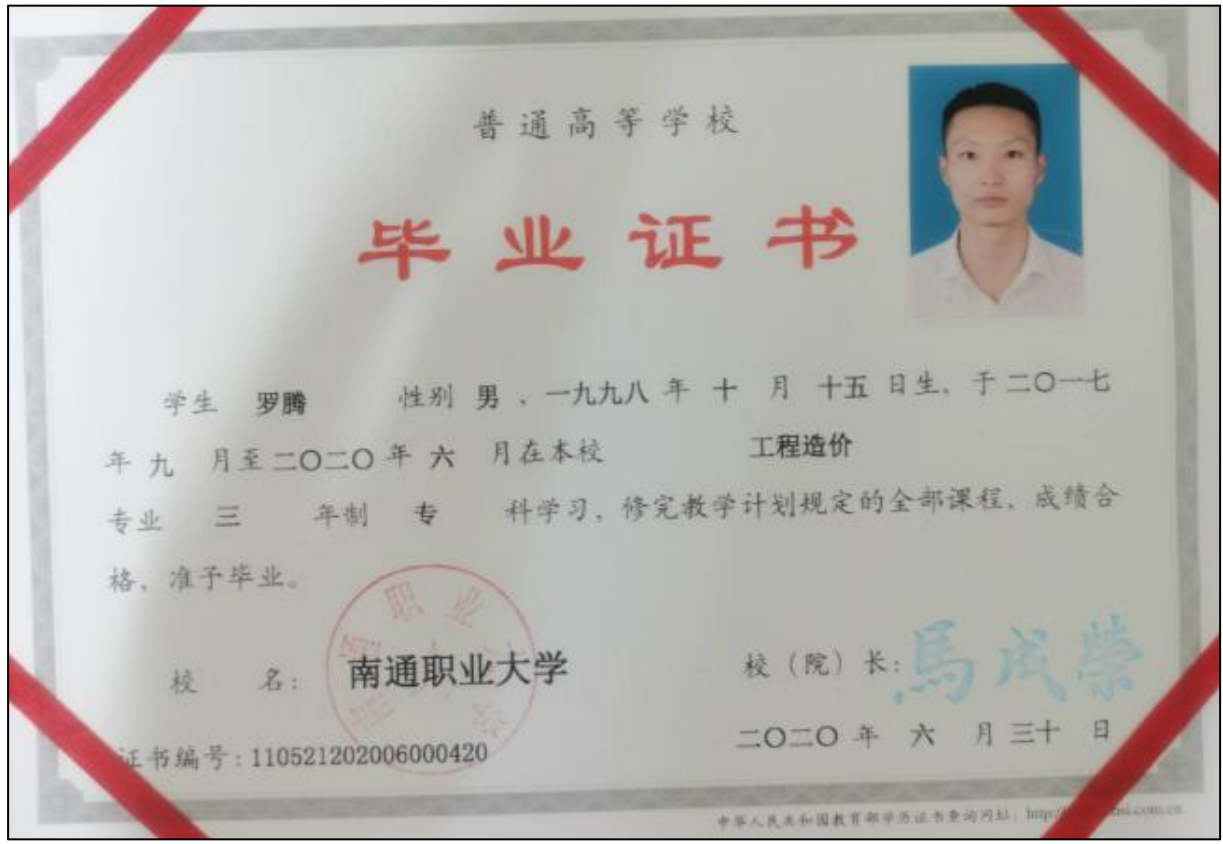 普通高等学校
毕业证书
学生 罗腾 性别 男，一九九八 年 十 月 十五 日生，于 二〇一七
年 九 月至 二〇二〇 年 六 月在本校 工程造价
专业 三 年制 专 科学习，修完教学计划规定的全部课程，成绩合
格，准予毕业。
校 名：南通职业大学 校（院）长：馬成榮
证书编号：110521202006000420 二〇二〇 年 六 月 三十 日
中华人民共和国教育部学历证书查询网址：http:/